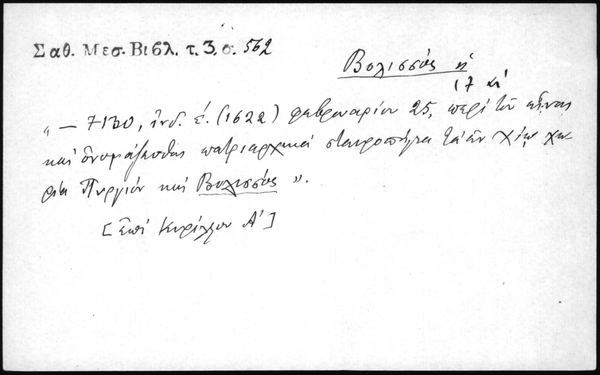 Σαθ. Μεσ. Βιβλ. τ. 3. σ. 562
Βολισσός ἡ
17 αἰ
" — 7130, ἰνδ. ε΄. (1622) φεβρουαρίου 25, περὶ τοῦ εἶναι
καὶ ὀνομάζεσθαι πατριαρχικὰ σταυροπήγια τὰ ἐν Χίῳ χω-
ρία Πυργίον καὶ Βολισσός ".
[ἐπὶ Κυρίλλου Α΄]